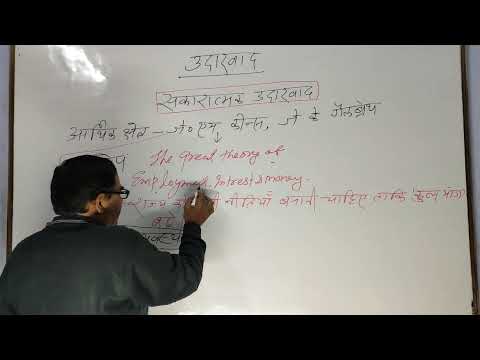 उदारवाद
सकारात्मक उदारवाद
आर्थिक क्षेत्र - जे० एम० कीन्स, जे के गैलब्रेथ
The Great theory of
Employment, Interest & money.
राज्य नीतियाँ बनानी चाहिए ताकि कुल मांग
बढ़े